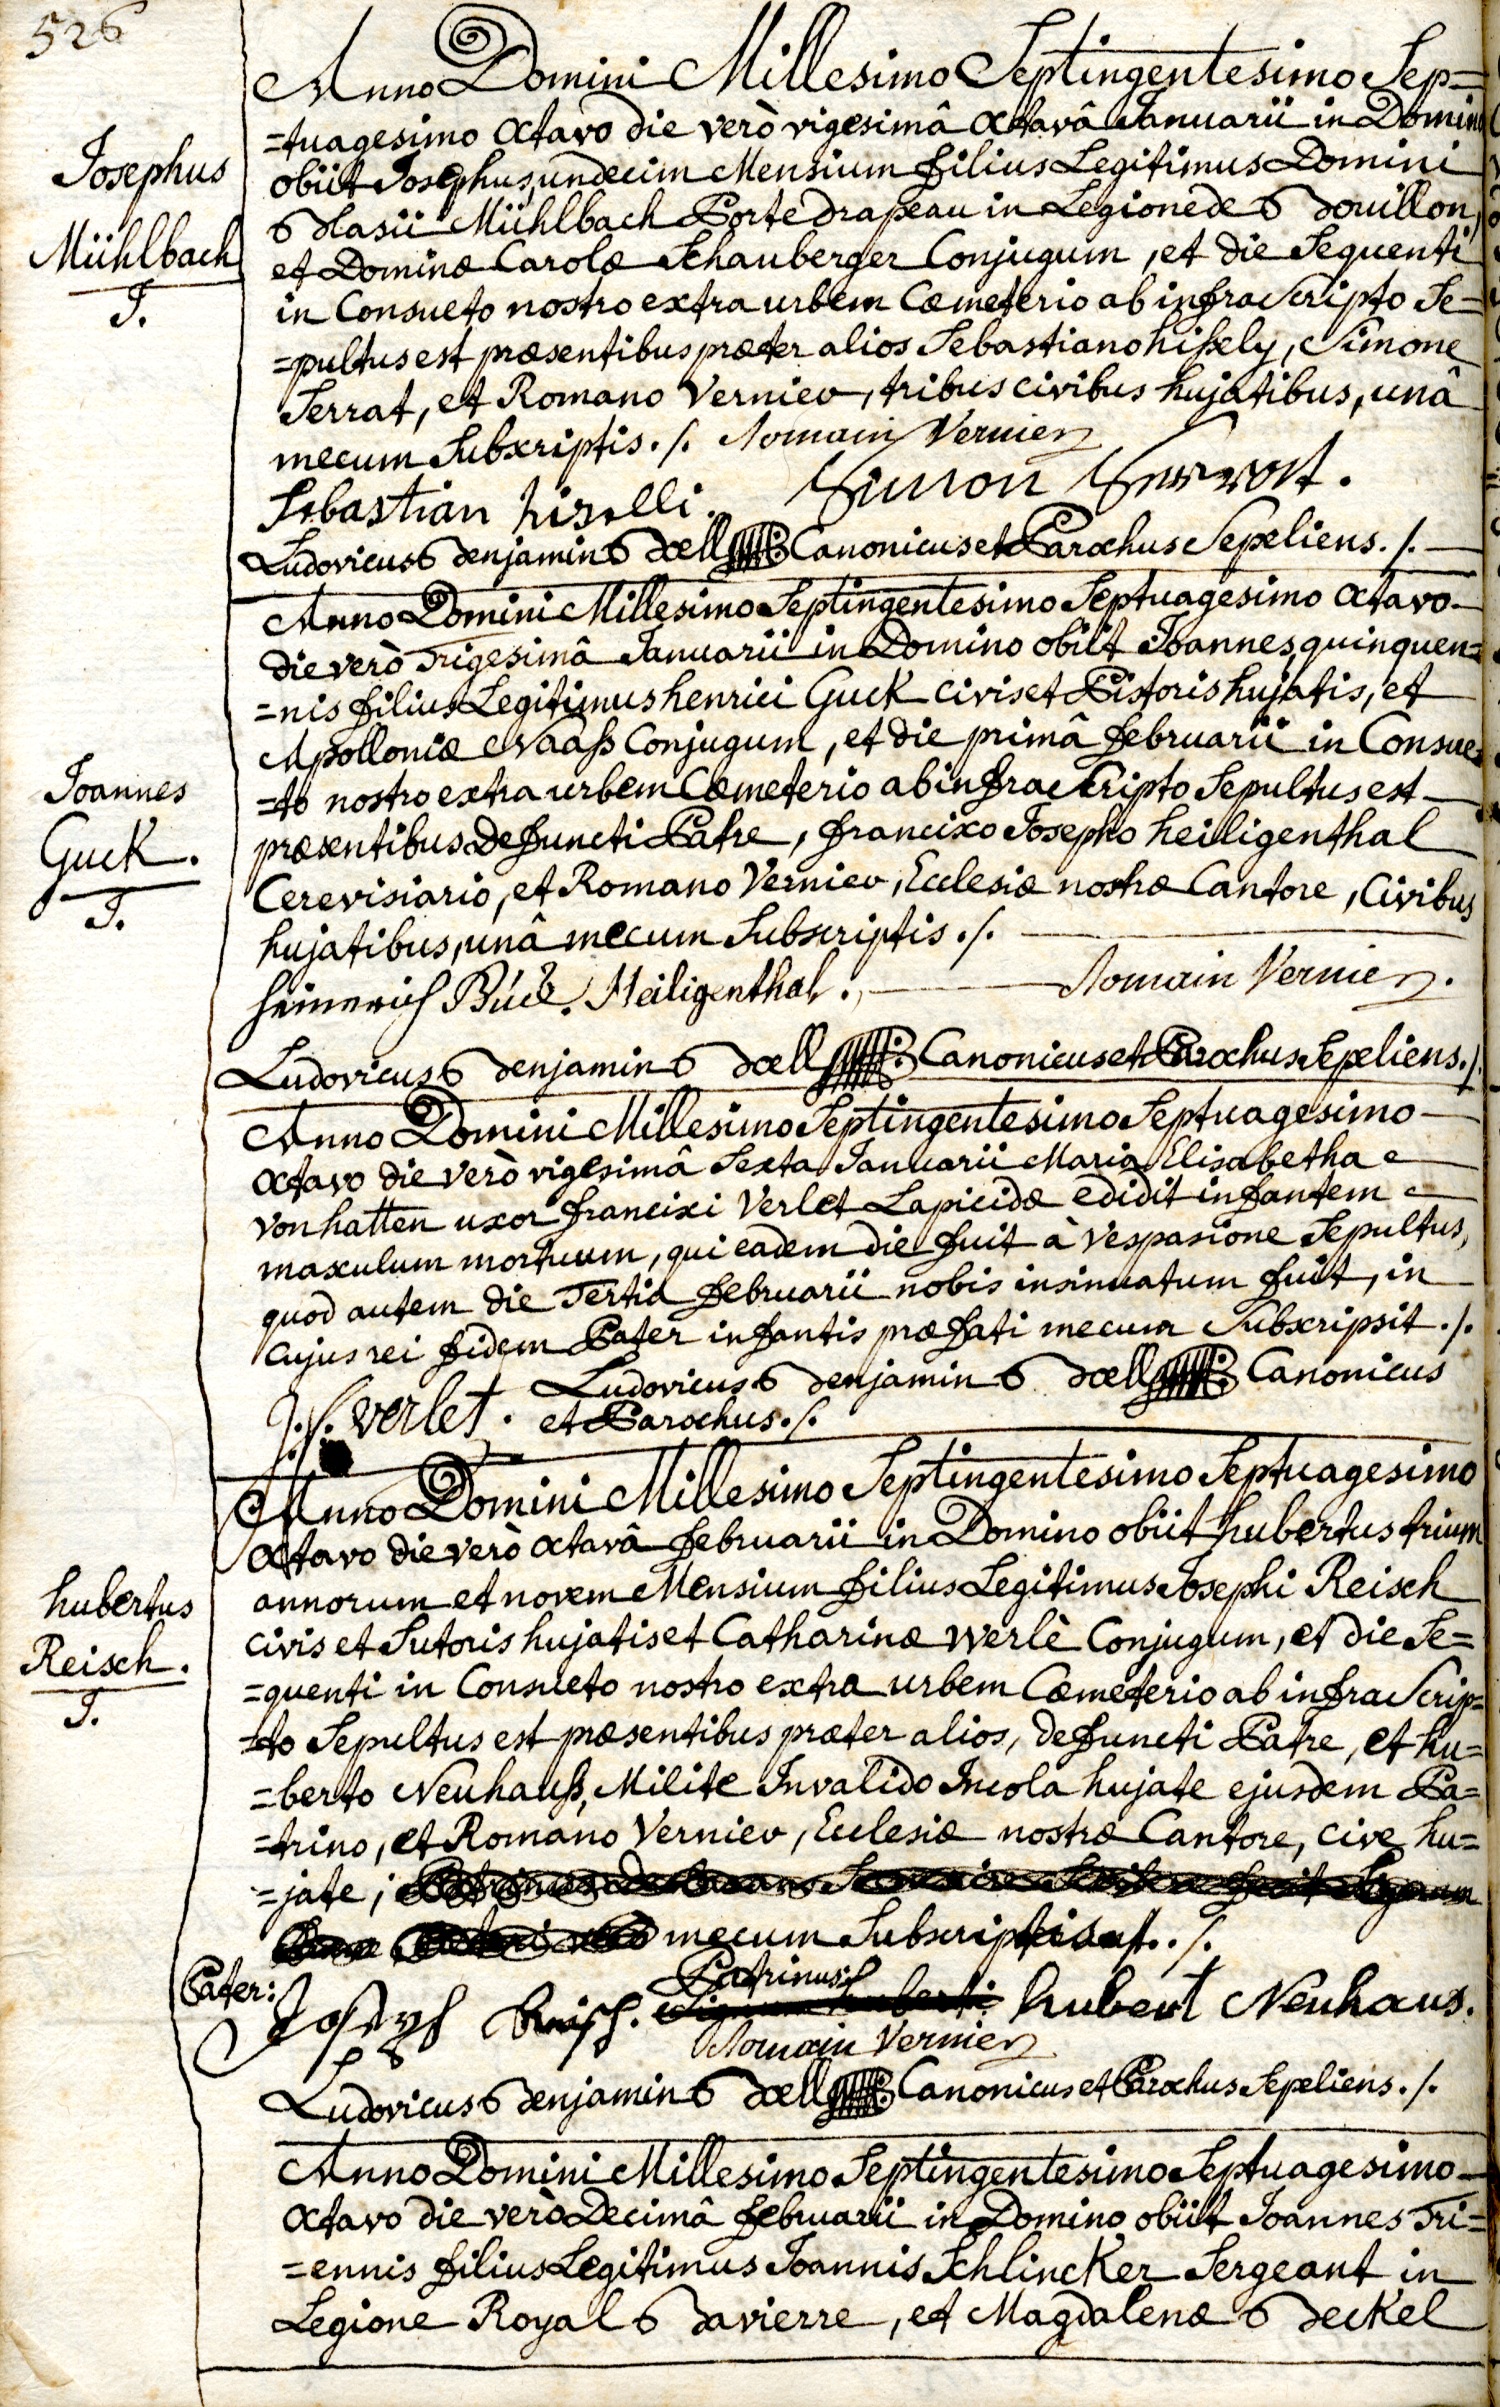 526
Anno Domini Millesimo Septingentesimo Sep=
=tuagesimo Octavo die verò vigesimâ Octavâ Januarii in Domino
Josephus
obiit Josephus, undecim Mensium filius Legitimus Domini
Blasii Mühlbach Porte drapeau in Legione de Bouillon,
Mühlbach
et Dominæ Carolæ Schauberger Conjugum, et die Sequenti
J.
in Consueto nostro extra urbem Cæmeterio ab infra Scripto Se=
=pultus est præsentibus præter alios Sebastiano hißely, Simone
Serrat, et Romano Vernier, tribus civibus hujatibus, unâ
mecum Subscriptis ./. Romain Vernier
Sebastian hiselli. Simon
Ludovicus Benjamin Boell Canonicus et Parochus Sepeliens ./.
Anno Domini Millesimo Septingentesimo Septuagesimo Octavo
die verò Trigesimâ Januarii in Domino obiit Joannes, quinquen=
=nis filius Legitimus henrici Guck civis et Pistoris hujatis, et
Apolloniæ Naaß Conjugum, et die primâ februarii in Consue=
Joannes
=to nostro extra urbem Cæmeterio ab infra Scripto Sepultus est
Guck.
præsentibus Defuncti Patre, francisco Josepho heiligenthal
Cerevisiario, et Romano Vernier, Ecclesiæ nostræ Cantore, Civibus
J.
hujatibus, unâ mecum Subscriptis ./.
Heiligenthal. Romain Vernier.
Ludovicus Benjamin Boell Canonicus et Parochus Sepeliens ./.
Anno Domini Millesimo Septingentesimo Septuagesimo
Octavo die verò vigesimâ Sexta Januarii Maria Elisabetha
von hatten uxor francisci Verlet Lapicidæ edidit infantem
masculum mortuum, qui eadem die fuit à Vespasione Sepultus,
quod autem die Tertia februarii nobis insinuatum fuit, in
Cujus rei fidem Pater infantis præfati mecum Subscripsit ./.
Ludovicus Benjamin Boell Canonicus
verlet. et Parochus ./.
Anno Domini Millesimo Septingentesimo Septuagesimo
Octavo die verò Octavâ februarii in Domino obiit hubertus trium
annorum et novem Mensium filius Legitimus Josephi Reisch
hubertus
civis et Sutoris hujatis et Catharinæ Werlè Conjugum, et die Se=
Reisch.
=quenti in Consueto nostro extra urbem Cæmeterio ab infra Scrip=
J.
=to Sepultus est præsentibus præter alios, defuncti Patre, et hu=
=berto Neuhauß, Milite Invalido Incola hujate ejusdem Pa=
=trino, et Romano Vernier, Ecclesiæ nostræ Cantore, cive hu=
=jate,
mecum Subscriptis ./.
Pater: Joseph Reisch. Patrinus: hubert Neuhaus.
Romain Vernier
Ludovicus Benjamin Boell Canonicus et Parochus Sepeliens ./.
Anno Domini Millesimo Septingentesimo Septuagesimo
Octavo die verò Decimâ februarii in Domino obiit Joannes Tri=
=ennis filius Legitimus Joannis Schlincker Sergeant in
Legione Royal Bavierre, et Magdalenæ Beckel